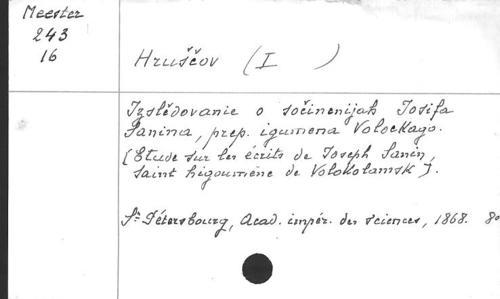 Meester
243
16
Hruščov (I )
Izslědovanie o sočinenijah Iosifa
Sanina, prep. igumena Volockago.
[Etude sur les écrits de Joseph Sanin,
saint higoumène de Volokolamsk].
St Pétersbourg, Acad. impér. des sciences, 1868. 8o